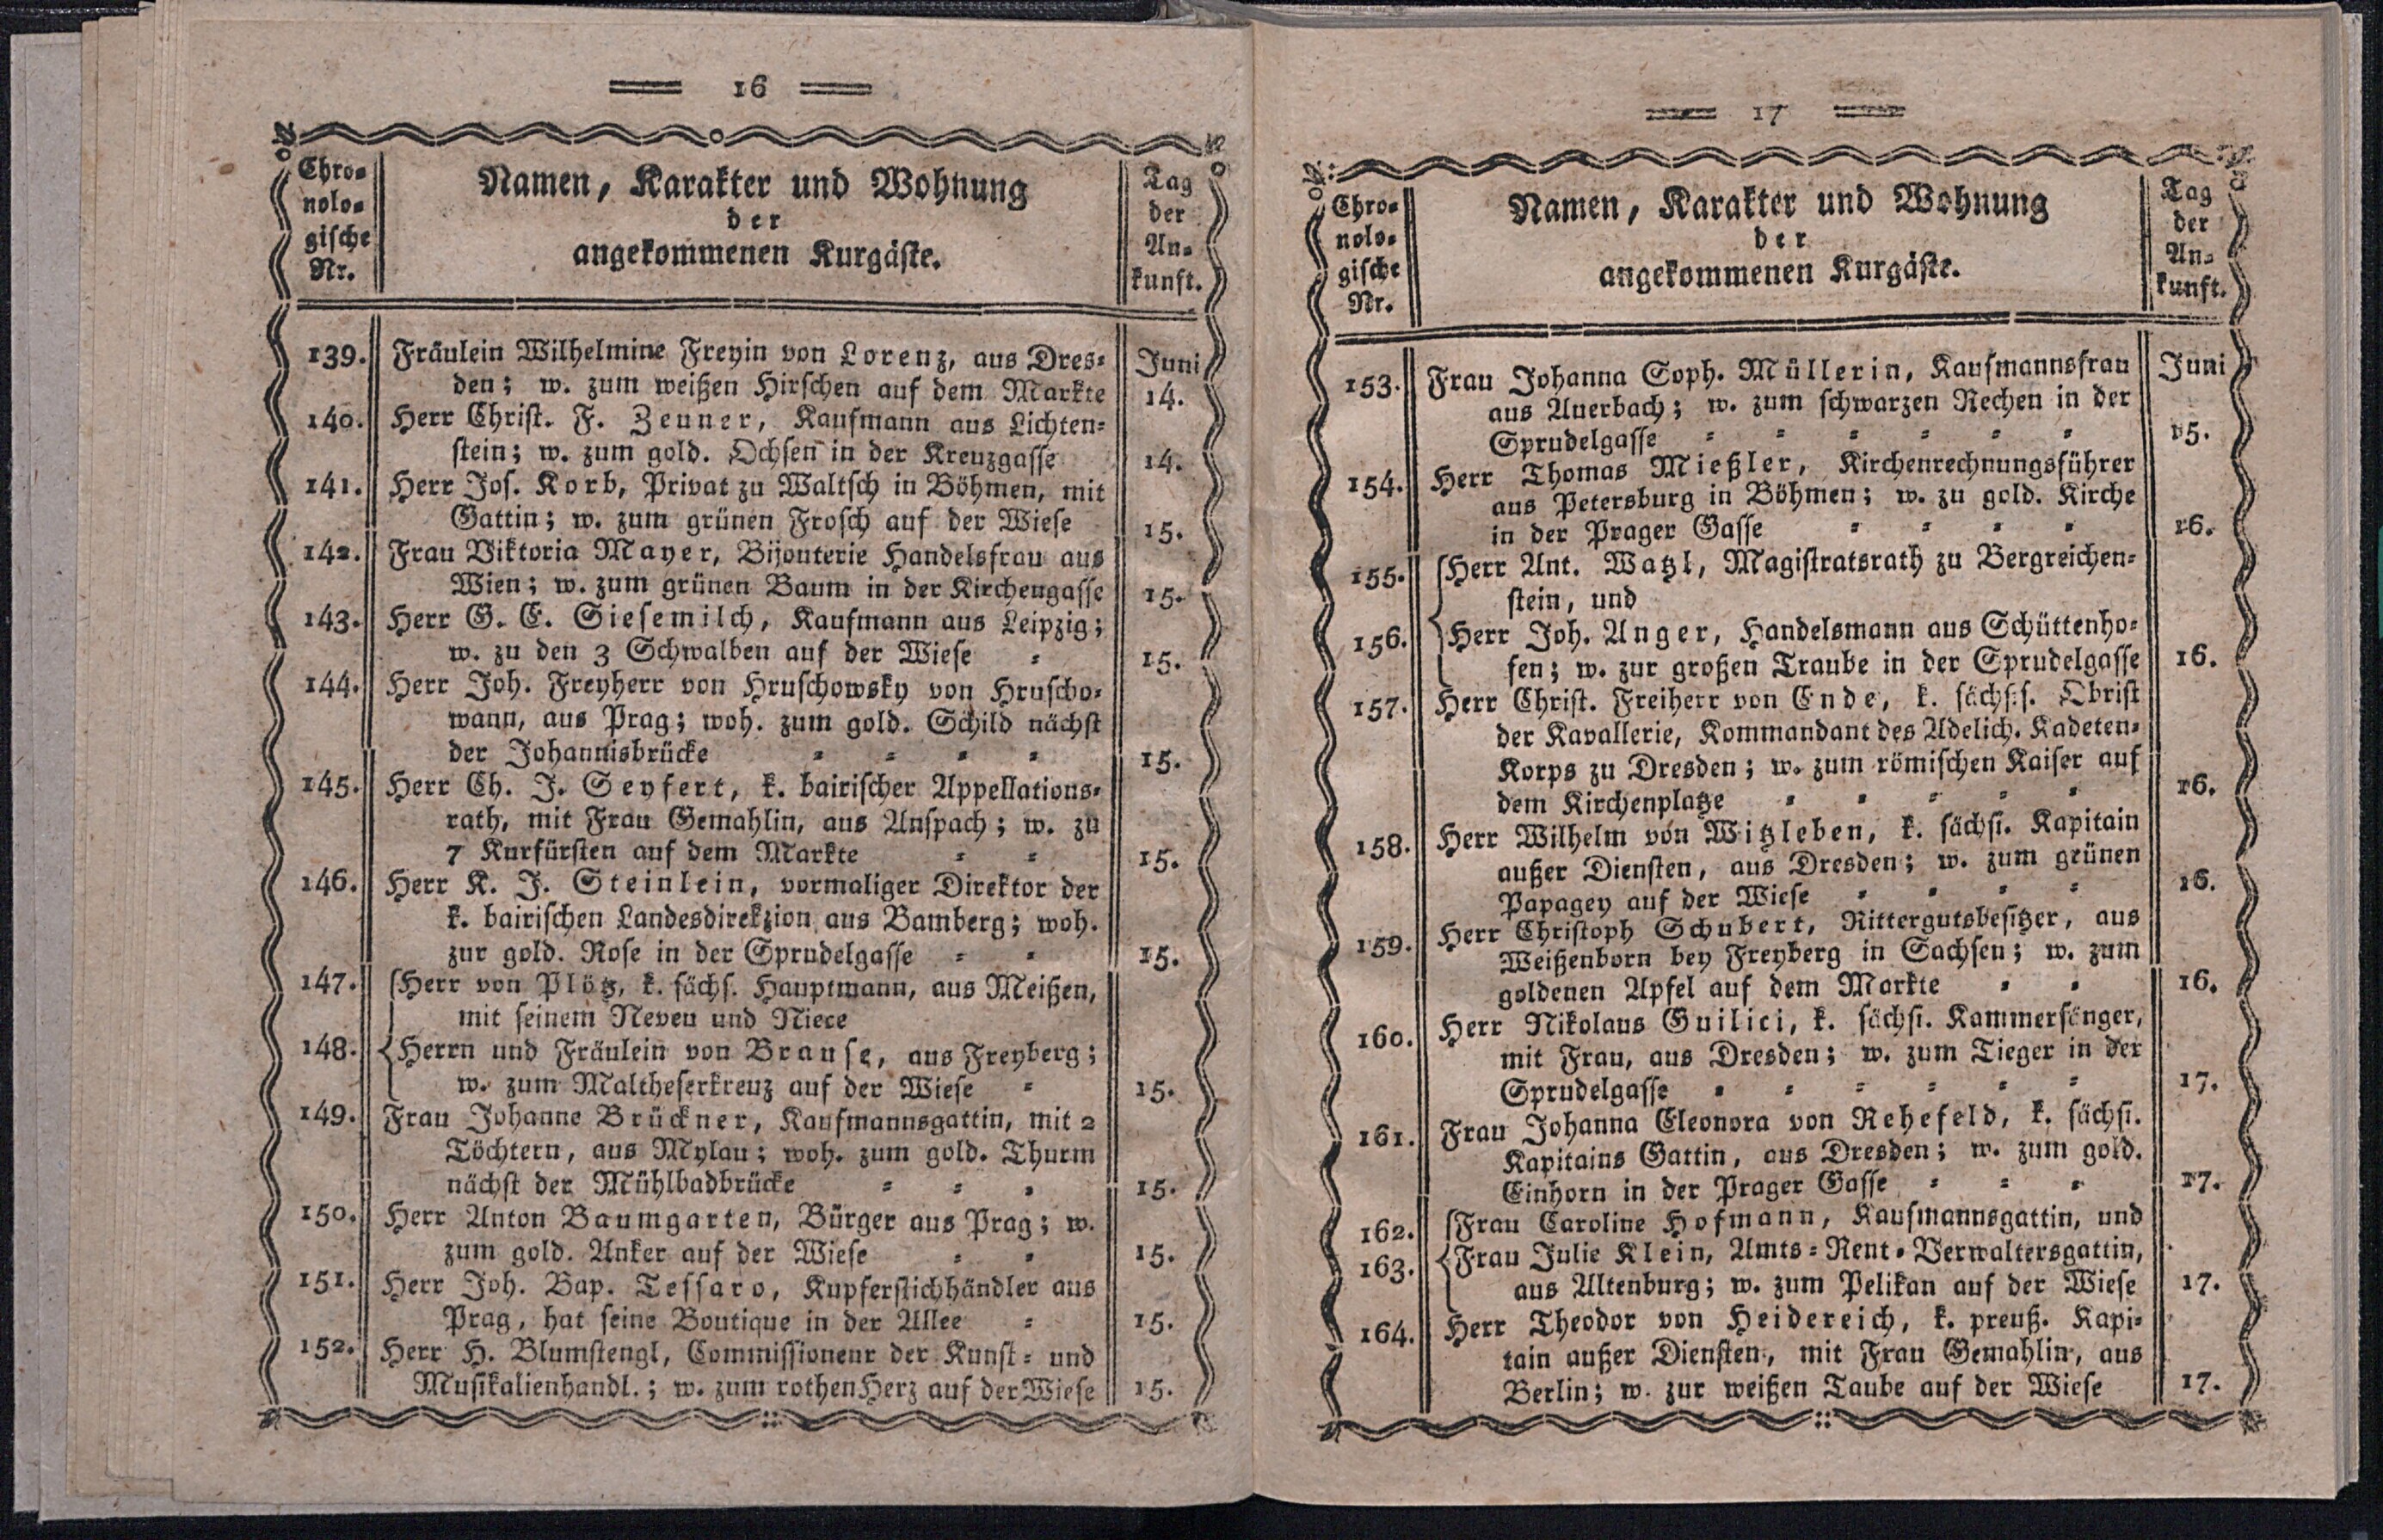 16
Chro-
nolo-
gische
Nr.
Namen, Karakter und Wohnung
der
angekommenen Kurgäste.
Tag
der
An-
kunft.
139. Fräulein Wilhelmine Freyin von Lorenz, aus Dres- Juni
den; w. zum weißen Hirschen auf dem Markte 14.
140. Herr Christ. F. Zeuner, Kaufmann aus Lichten-
stein; w. zum gold. Ochsen in der Kreuzgasse 14.
141. Herr Jos. Korb, Privat zu Waltsch in Böhmen, mit
Gattin; w. zum grünen Frosch auf der Wiese 15.
142. Frau Viktoria Mayer, Bijouterie Handelsfrau aus
Wien; w. zum grünen Baum in der Kirchengasse 15.
143. Herr G. E. Siesemilch, Kaufmann aus Leipzig;
w. zu den 3 Schwalben auf der Wiese - 15.
144. Herr Joh. Freyherr von Hruschowsky von Hruscho-
wann, aus Prag; woh. zum gold. Schild nächst
der Johannisbrücke - - - - 15.
145. Herr Ch. J. Seyfert, k. bairischer Appellations-
rath, mit Frau Gemahlin, aus Anspach; w. zu
7 Kurfürsten auf dem Markte - - 15.
146. Herr K. J. Steinlein, vormaliger Direktor der
k. bairischen Landesdirekzion aus Bamberg; woh.
zur gold. Rose in der Sprudelgasse - - 15.
147. Herr von Plötz, k. sächs. Hauptmann, aus Meißen,
mit seinem Neveu und Niece
148. Herrn und Fräulein von Brause, aus Freyberg;
w. zum Maltheserkreuz auf der Wiese - 15.
149. Frau Johanne Brückner, Kaufmannsgattin, mit 2
Töchtern, aus Mylau; woh. zum gold. Thurm
nächst der Mühlbadbrücke - - - 15.
150. Herr Anton Baumgarten, Bürger aus Prag; w.
zum gold. Anker auf der Wiese - - 15.
151. Herr Joh. Bap. Tessaro, Kupferstichhändler aus
Prag, hat seine Boutique in der Allee - 15.
152. Herr H. Blumstengl, Commissioneur der Kunst- und
Musikalienhandl.; w. zum rothen Herz auf der Wiese 15.
17
Chro-
nolo-
gische
Nr.
Namen, Karakter und Wohnung
der
angekommenen Kurgäste.
Tag
der
An-
kunft.
153. Frau Johanna Soph. Müllerin, Kaufmannsfrau Juni
aus Auerbach; w. zum schwarzen Rechen in der
Sprudelgasse - - - - - - 15.
154. Herr Thomas Mießler, Kirchenrechnungsführer
aus Petersburg in Böhmen; w. zu gold. Kirche
in der Prager Gasse - - - - 16.
155. Herr Ant. Watzl, Magistratsrath zu Bergreichen-
stein, und
156. Herr Joh. Anger, Handelsmann aus Schüttenho-
fen; w. zur großen Traube in der Sprudelgasse 16.
157. Herr Christ. Freiherr von Ende, k. sächss. Obrist
der Kavallerie, Kommandant des Adelich. Kadeten-
Korps zu Dresden; w. zum römischen Kaiser auf
dem Kirchenplatze - - - - - 16.
158. Herr Wilhelm von Witzleben, k. sächs. Kapitain
außer Diensten, aus Dresden; w. zum grünen
Papagey auf der Wiese - - - - 16.
159. Herr Christoph Schubert, Rittergutsbesitzer, aus
Weißenborn bey Freyberg in Sachsen; w. zum
goldenen Apfel auf dem Markte - - 16.
160. Herr Nikolaus Guilici, k. sächs. Kammersänger,
mit Frau, aus Dresden; w. zum Tieger in der
Sprudelgasse - - - - - - 17.
161. Frau Johanna Eleonora von Rehefeld, k. sächs.
Kapitains Gattin, aus Dresden; w. zum gold.
Einhorn in der Prager Gasse - - - 17.
162. Frau Caroline Hofmann, Kaufmannsgattin, und
163. Frau Julie Klein, Amts-Rent-Verwaltersgattin,
aus Altenburg; w. zum Pelikan auf der Wiese 17.
164. Herr Theodor von Heidereich, k. preuß. Kapi-
tain außer Diensten, mit Frau Gemahlin, aus
Berlin; w. zur weißen Taube auf der Wiese 17.